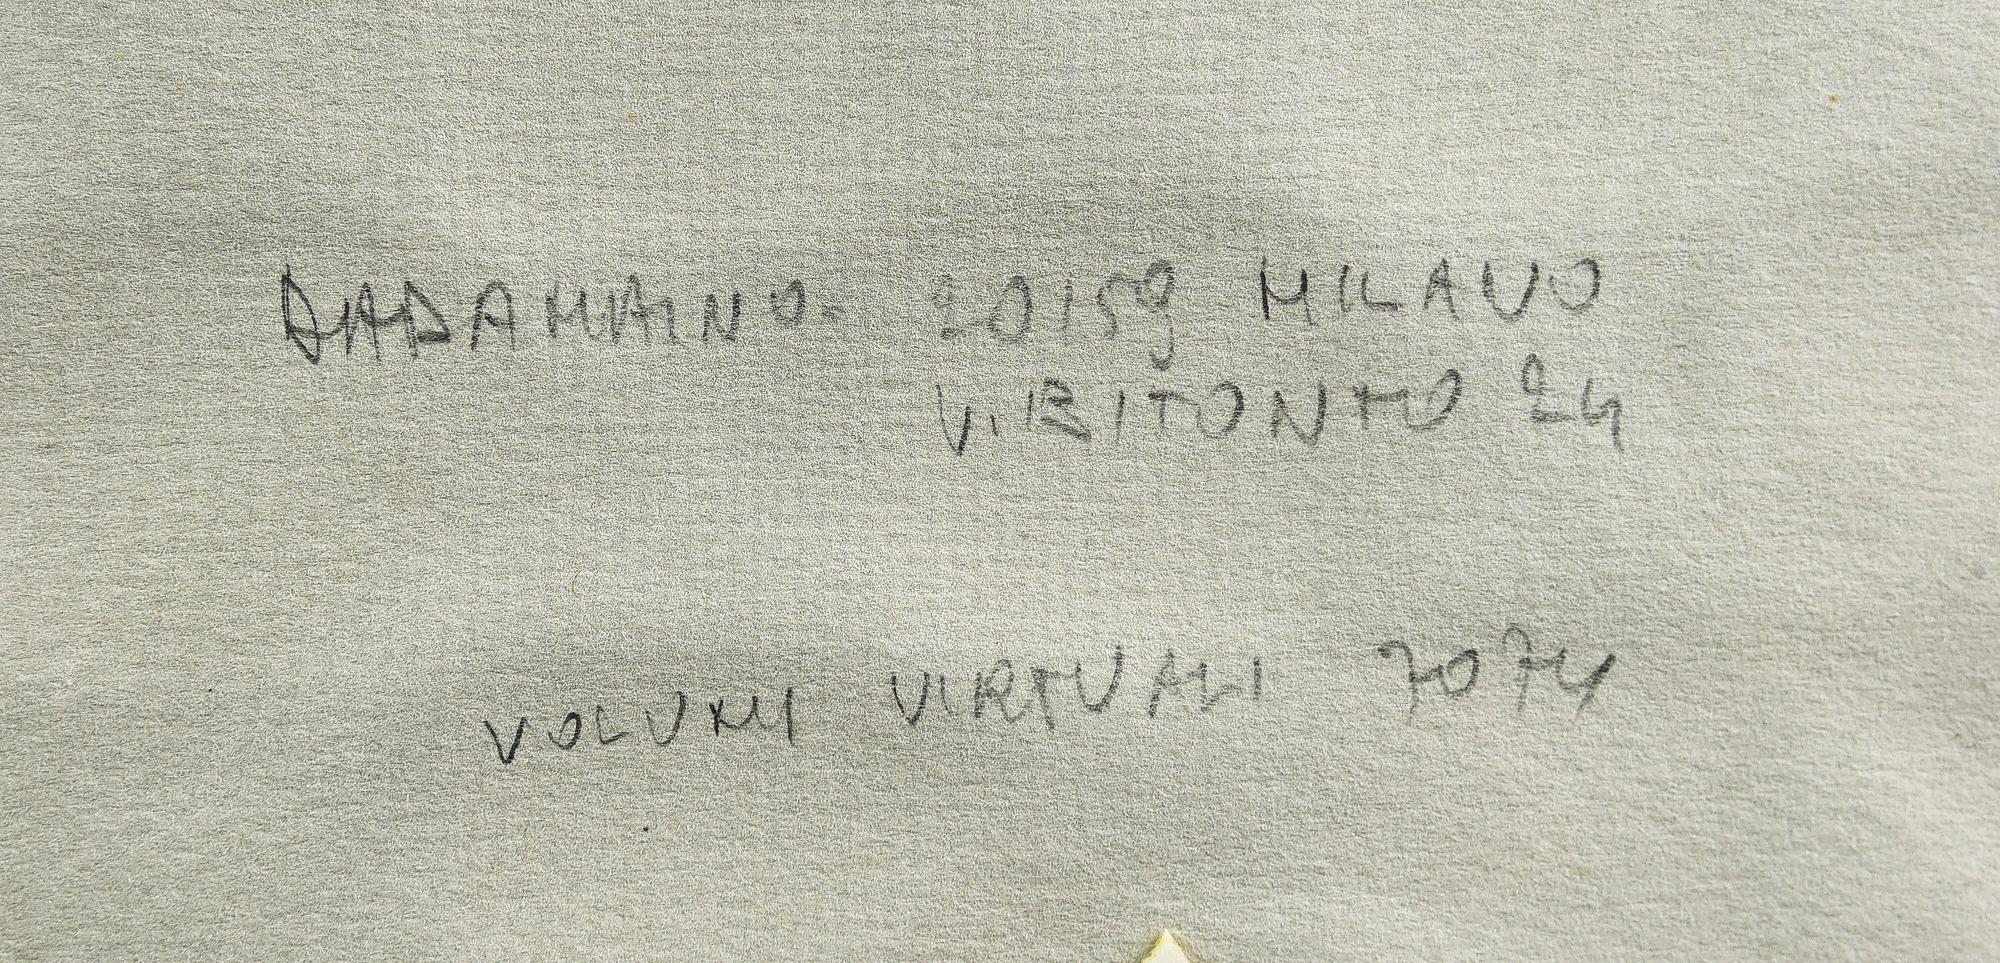 DADAMAINO. 20159 MILANO
V. BITONTO 24
VOLUMI VIRTUALI 7074